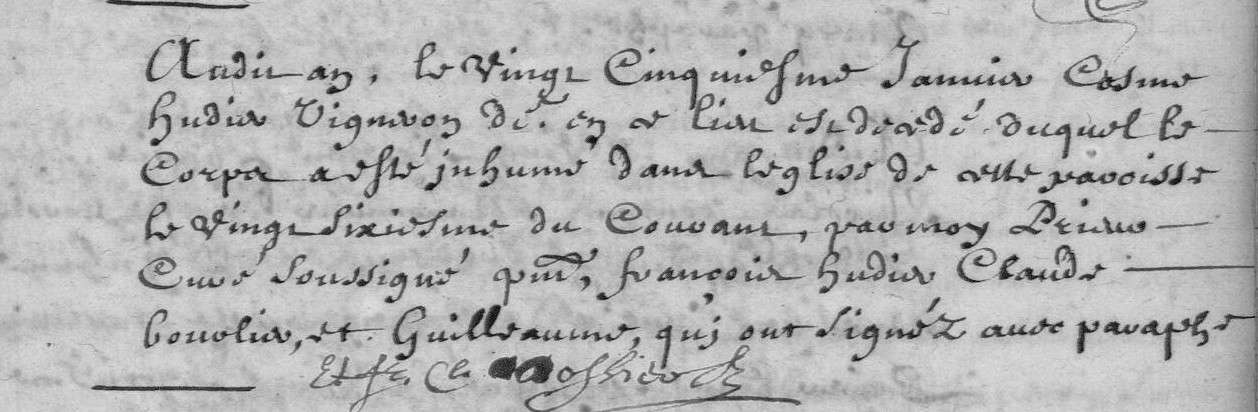 Audit an, le vingt Cinquiesme Januier Cosme
hudier Vigneron dé. en ce lieu est decedé duquel le
Corps a esté jnhumé dans leglise de cette paroisse
le vingt sixiesme du Courant, par moy Prieur
Curé soussigné pnt, françois hudier Claude
bouvlier, et Guilleaume, quj ont signéz auec paraphe